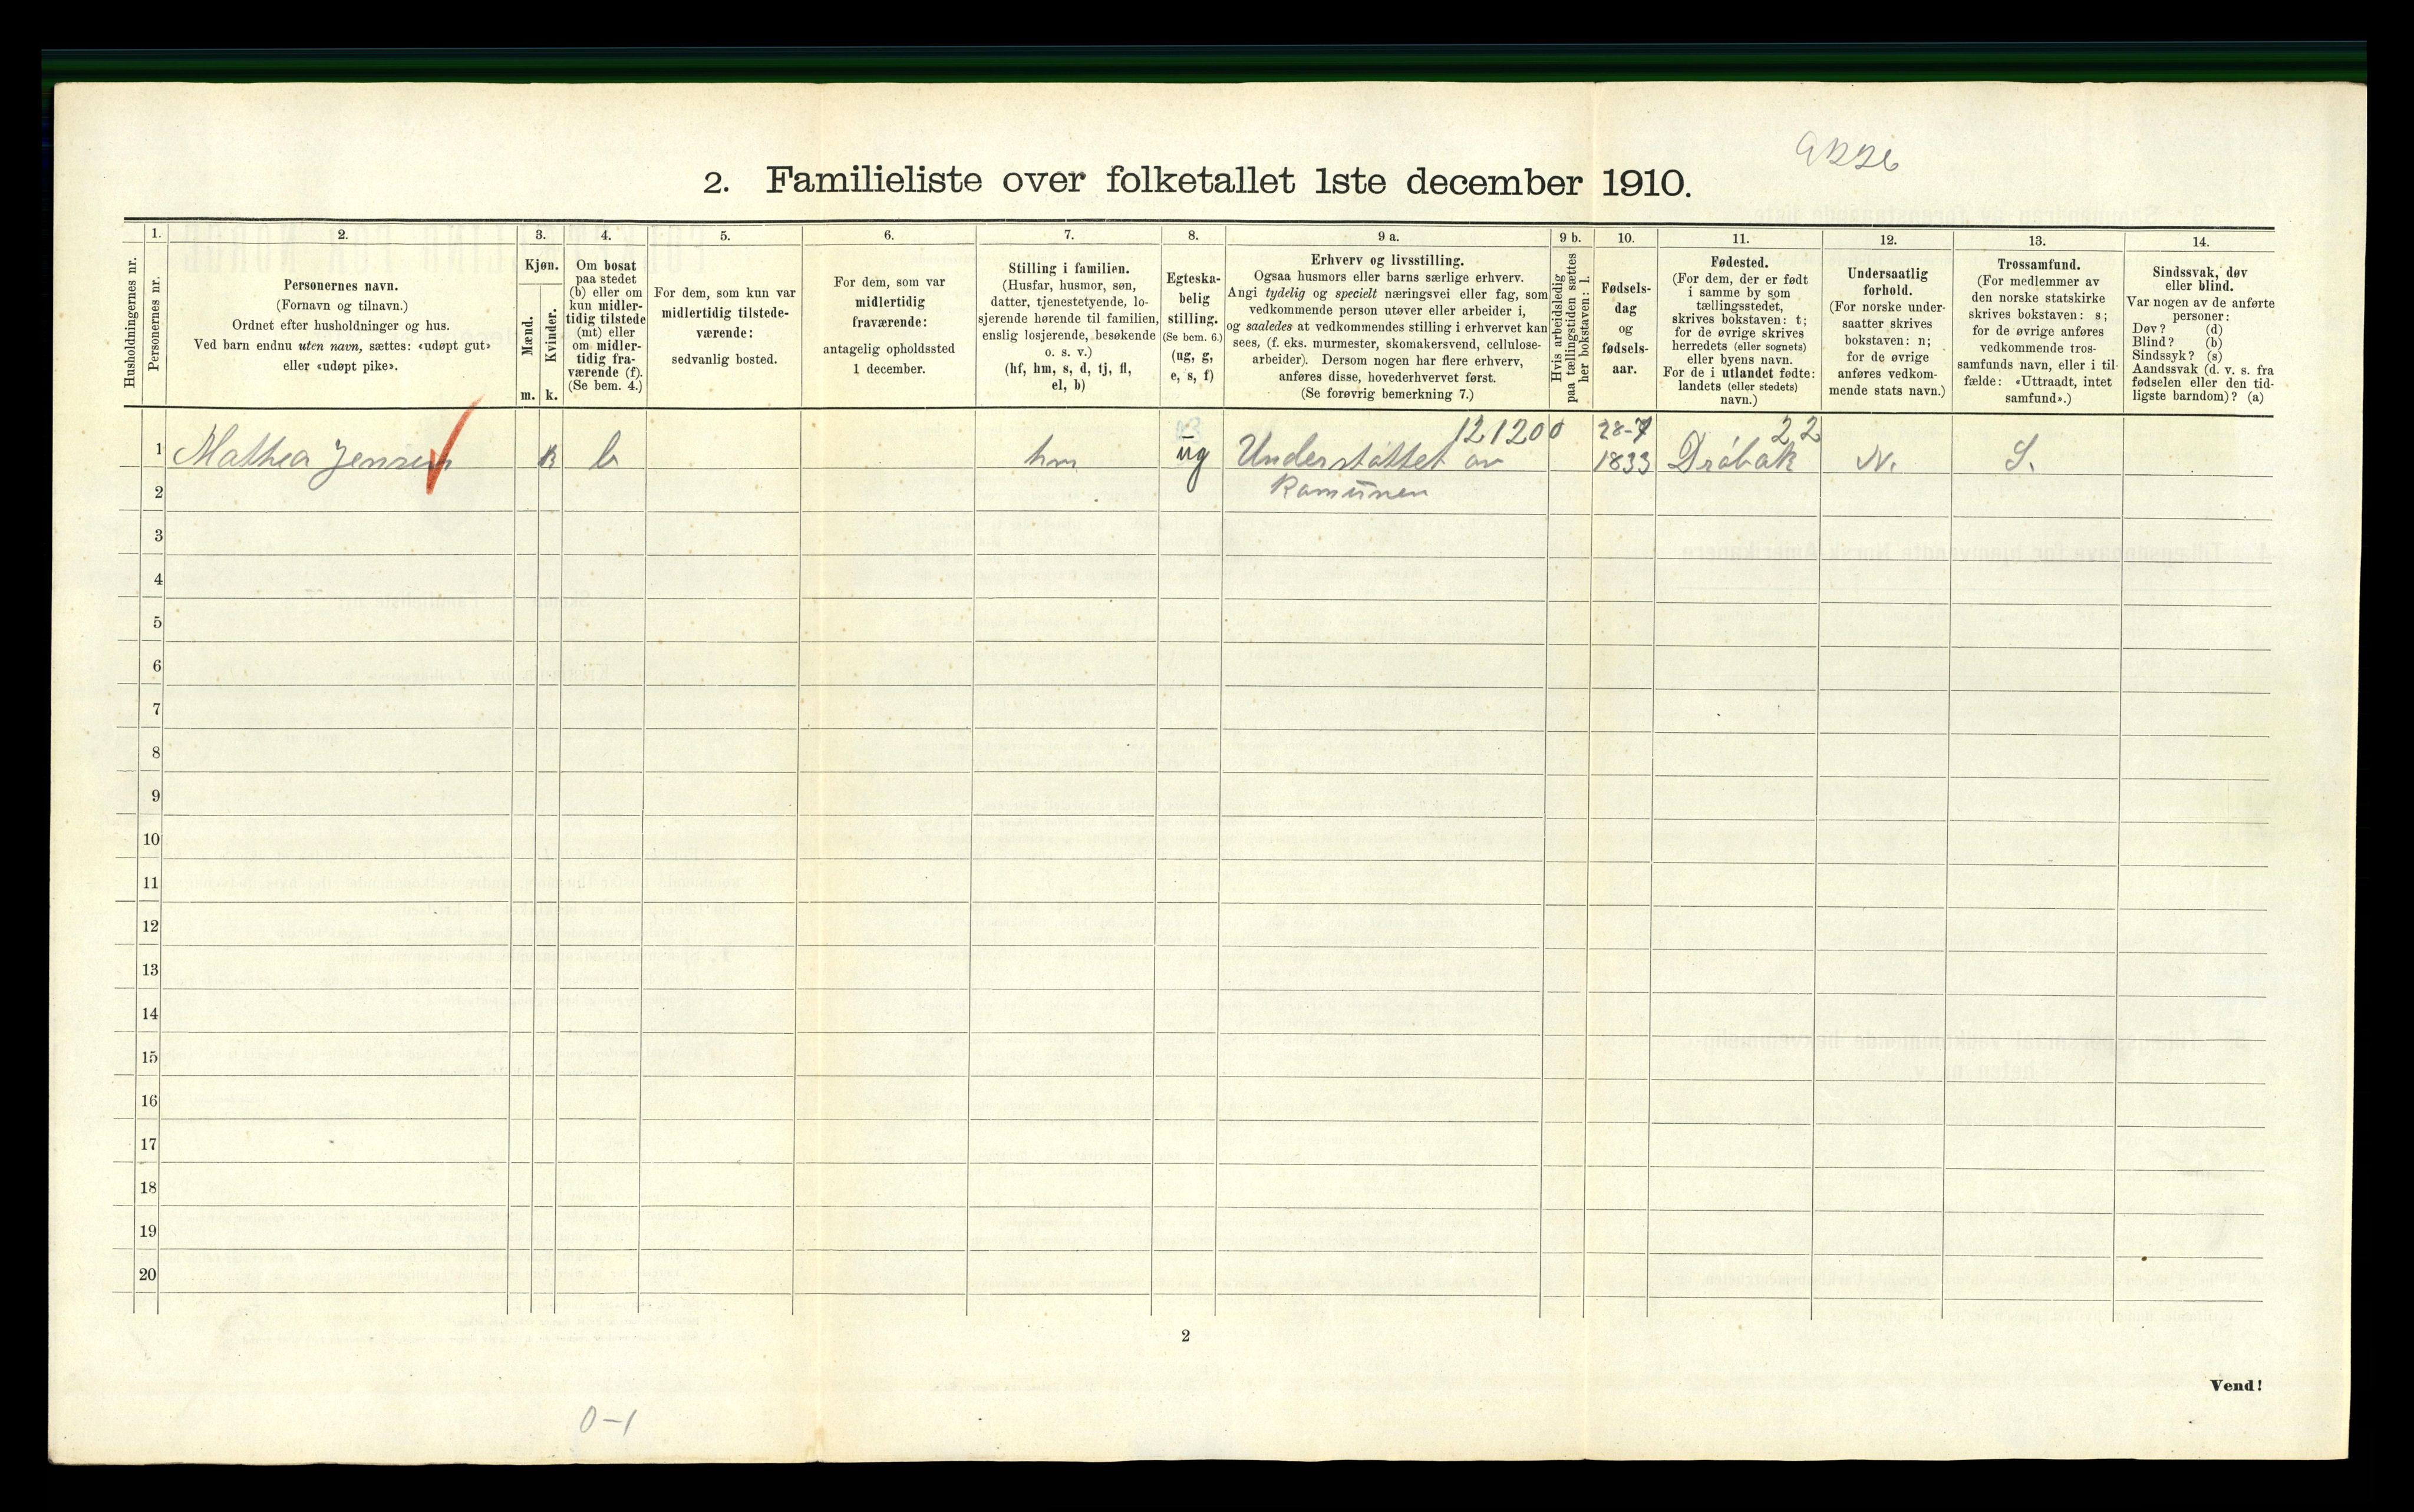 9226
2. Familieliste over folketallet 1ste december 1910.
Husholdningernes nr.
1.
Personernes nr.
2.
Personernes navn.
(Fornavn og tilnavn.)
Ordnet efter husholdninger og hus.
Ved barn endnu uten navn, sættes: «udøpt gut»
eller «udøpt pike».
3.
Kjøn.
Mænd.
Kvinder.
m. k.
4.
Om bosat
paa stedet
(b) eller om
kun midler-
tidig tilstede
(mt) eller
om midler-
tidig fra-
værende (f).
(Se bem. 4.)
5.
For dem, som kun var
midlertidig tilstede-
værende:
sedvanlig bosted.
6.
For dem, som var
midlertidig
fraværende:
antagelig opholdssted
1 december.
7.
Stilling i familien.
(Husfar, husmor, søn,
datter, tjenestetyende, lo-
sjerende hørende til familien,
enslig losjerende, besøkende
o. s. v.)
(hf, hm, s, d, tj, fl,
el, b)
8.
Egteska-
belig
stilling.
(Se bem. 6.)
(ug, g,
e, s, f)
9 a.
Erhverv og livsstilling.
Ogsaa husmors eller barns særlige erhverv.
Angi tydelig og specielt næringsvei eller fag, som
vedkommende person utøver eller arbeider i,
og saaledes at vedkommendes stilling i erhvervet kan
sees, (f. eks. murmester, skomakersvend, cellulose-
arbeider). Dersom nogen har flere erhverv,
anføres disse, hovederhvervet først.
(Se forøvrig bemerkning 7.)
9 b.
Hvis arbeidsledig
paa tællingstiden sættes
her bokstaven: l.
10.
Fødsels-
dag
og
fødsels-
aar.
11.
Fødested.
(For dem, der er født
i samme by som
tællingsstedet,
skrives bokstaven: t;
for de øvrige skrives
herredets (eller sognets)
eller byens navn.
For de i utlandet fødte:
landets (eller stedets)
navn.)
12.
Undersaatlig
forhold.
(For norske under-
saatter skrives
bokstaven: n;
for de øvrige
anføres vedkom-
mende stats navn.)
13.
Trossamfund.
(For medlemmer av
den norske statskirke
skrives bokstaven: s;
for de øvrige anføres
vedkommende tros-
samfunds navn, eller i til-
fælde: «Uttraadt, intet
samfund».)
14.
Sindssvak, døv
eller blind.
Var nogen av de anførte
personer:
Døv? (d)
Blind? (b)
Sindssyk? (s)
Aandssvak (d. v. s. fra
fødselen eller den tid-
ligste barndom)? (a)
121200 28-7 22
1 Mathea Jensen k b hm ug Understøttet av 1833 Drøbak N. S.
2 Komunen
3
4
5
6
7
8
9
10
11
12
13
14
15
16
17
18
19
20
2
Vend!
0-1